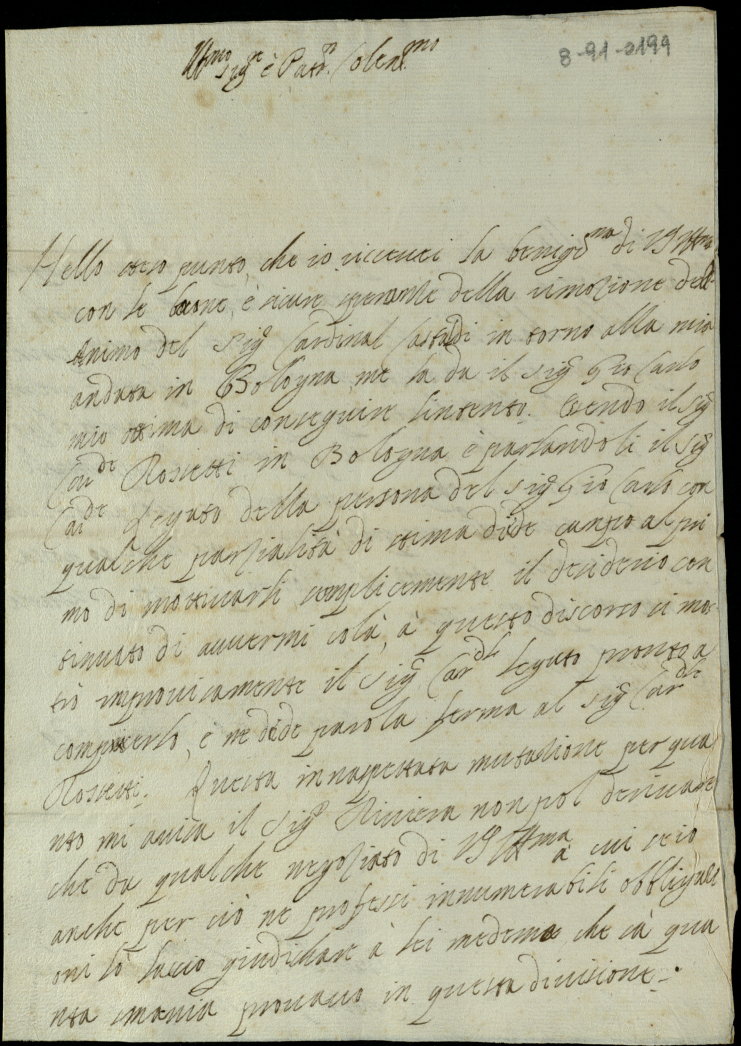 Illmo Sigre è Patrn Colenmo
8-91-0199
Nello steso punto, che io riceueti la benigma di VS Illma
con le buone, è sicure speranze della rimozione dell
Animo del Sigr Cardinal Castaldi in torno alla mia
andata in Bologna me la da il Sigr Gio Carlo
mio stima di conseguire lintento. Esendo il Sigr
Carde Rosetti in Bologna è parlandoli il Sigr
Carde Legato della persona del Sigr Gio Carlo con
qualche parzialità di stima diede campo al pri
mo di motiuarli semplicemente il desiderio con
tinuato di auermi colà, à questo discorso si mos
trò improuisamente il Sigr Cardle legato pronto a
compiacerlo, è ne diede parola ferma al Sigr Cardle
Rosetti. Questa innaspettata mutazione per qua
nto mi auisa il Sigr Riuiera non pol deriuare
che da qualche negoziato di VS Illma à cui se io
anche per ciò ne professi innumerabili obbligazi
oni lo lascio giudichare à lei medema che sà qua
nta smania prouauo in questa diuisione.